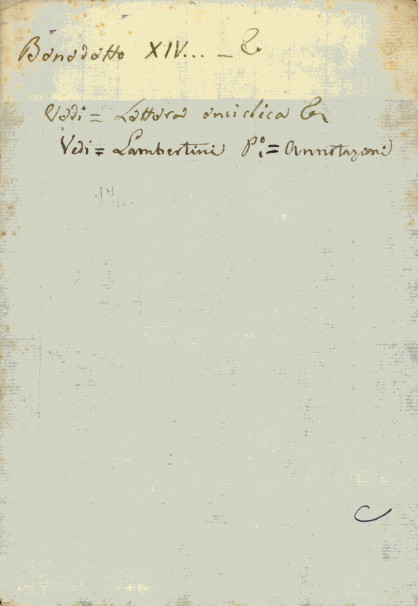 Benedetto XIV... –
Vedi = Lettera enciclica
Vedi = Lambertini P.º = Annotazioni